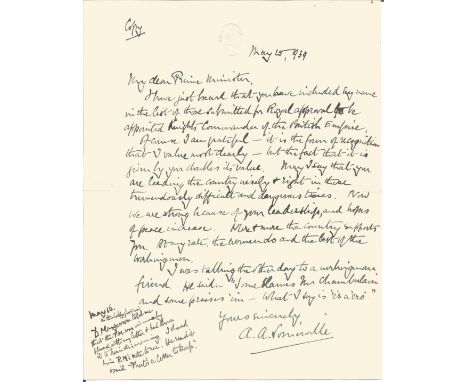 Copy
May 20, 1939
My dear Prime Minister,
I have just heard that you have included my name
in the list of those submitted for Royal approval to be
appointed Knights Commander of the British Empire.
Of course I am grateful – it is the form of recognition
that I value most dearly – but the fact that it is
given by you doubles its value. May I say that you
are leading the country wisely & right in these
tremendously difficult and dangerous times. Now
we are strong because of your leadership, and hopes
of peace increase. the country supports
you. At any rate, the women do and the best of the
working men.
I was talking the other day to a working man
friend. He said – "Some blames Mr Chamberlain
and some praises 'im – What I say is 'e's a 'ero"
Yours sincerely,
A. A. Somerville
May 16.
D. Margesson told me
that the P.M. was
letter & had
I had
said "That's a letter to keep".